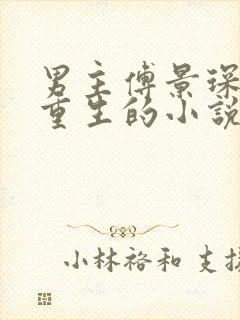 男主傅景琛
重生的小説
小林裕和 支援